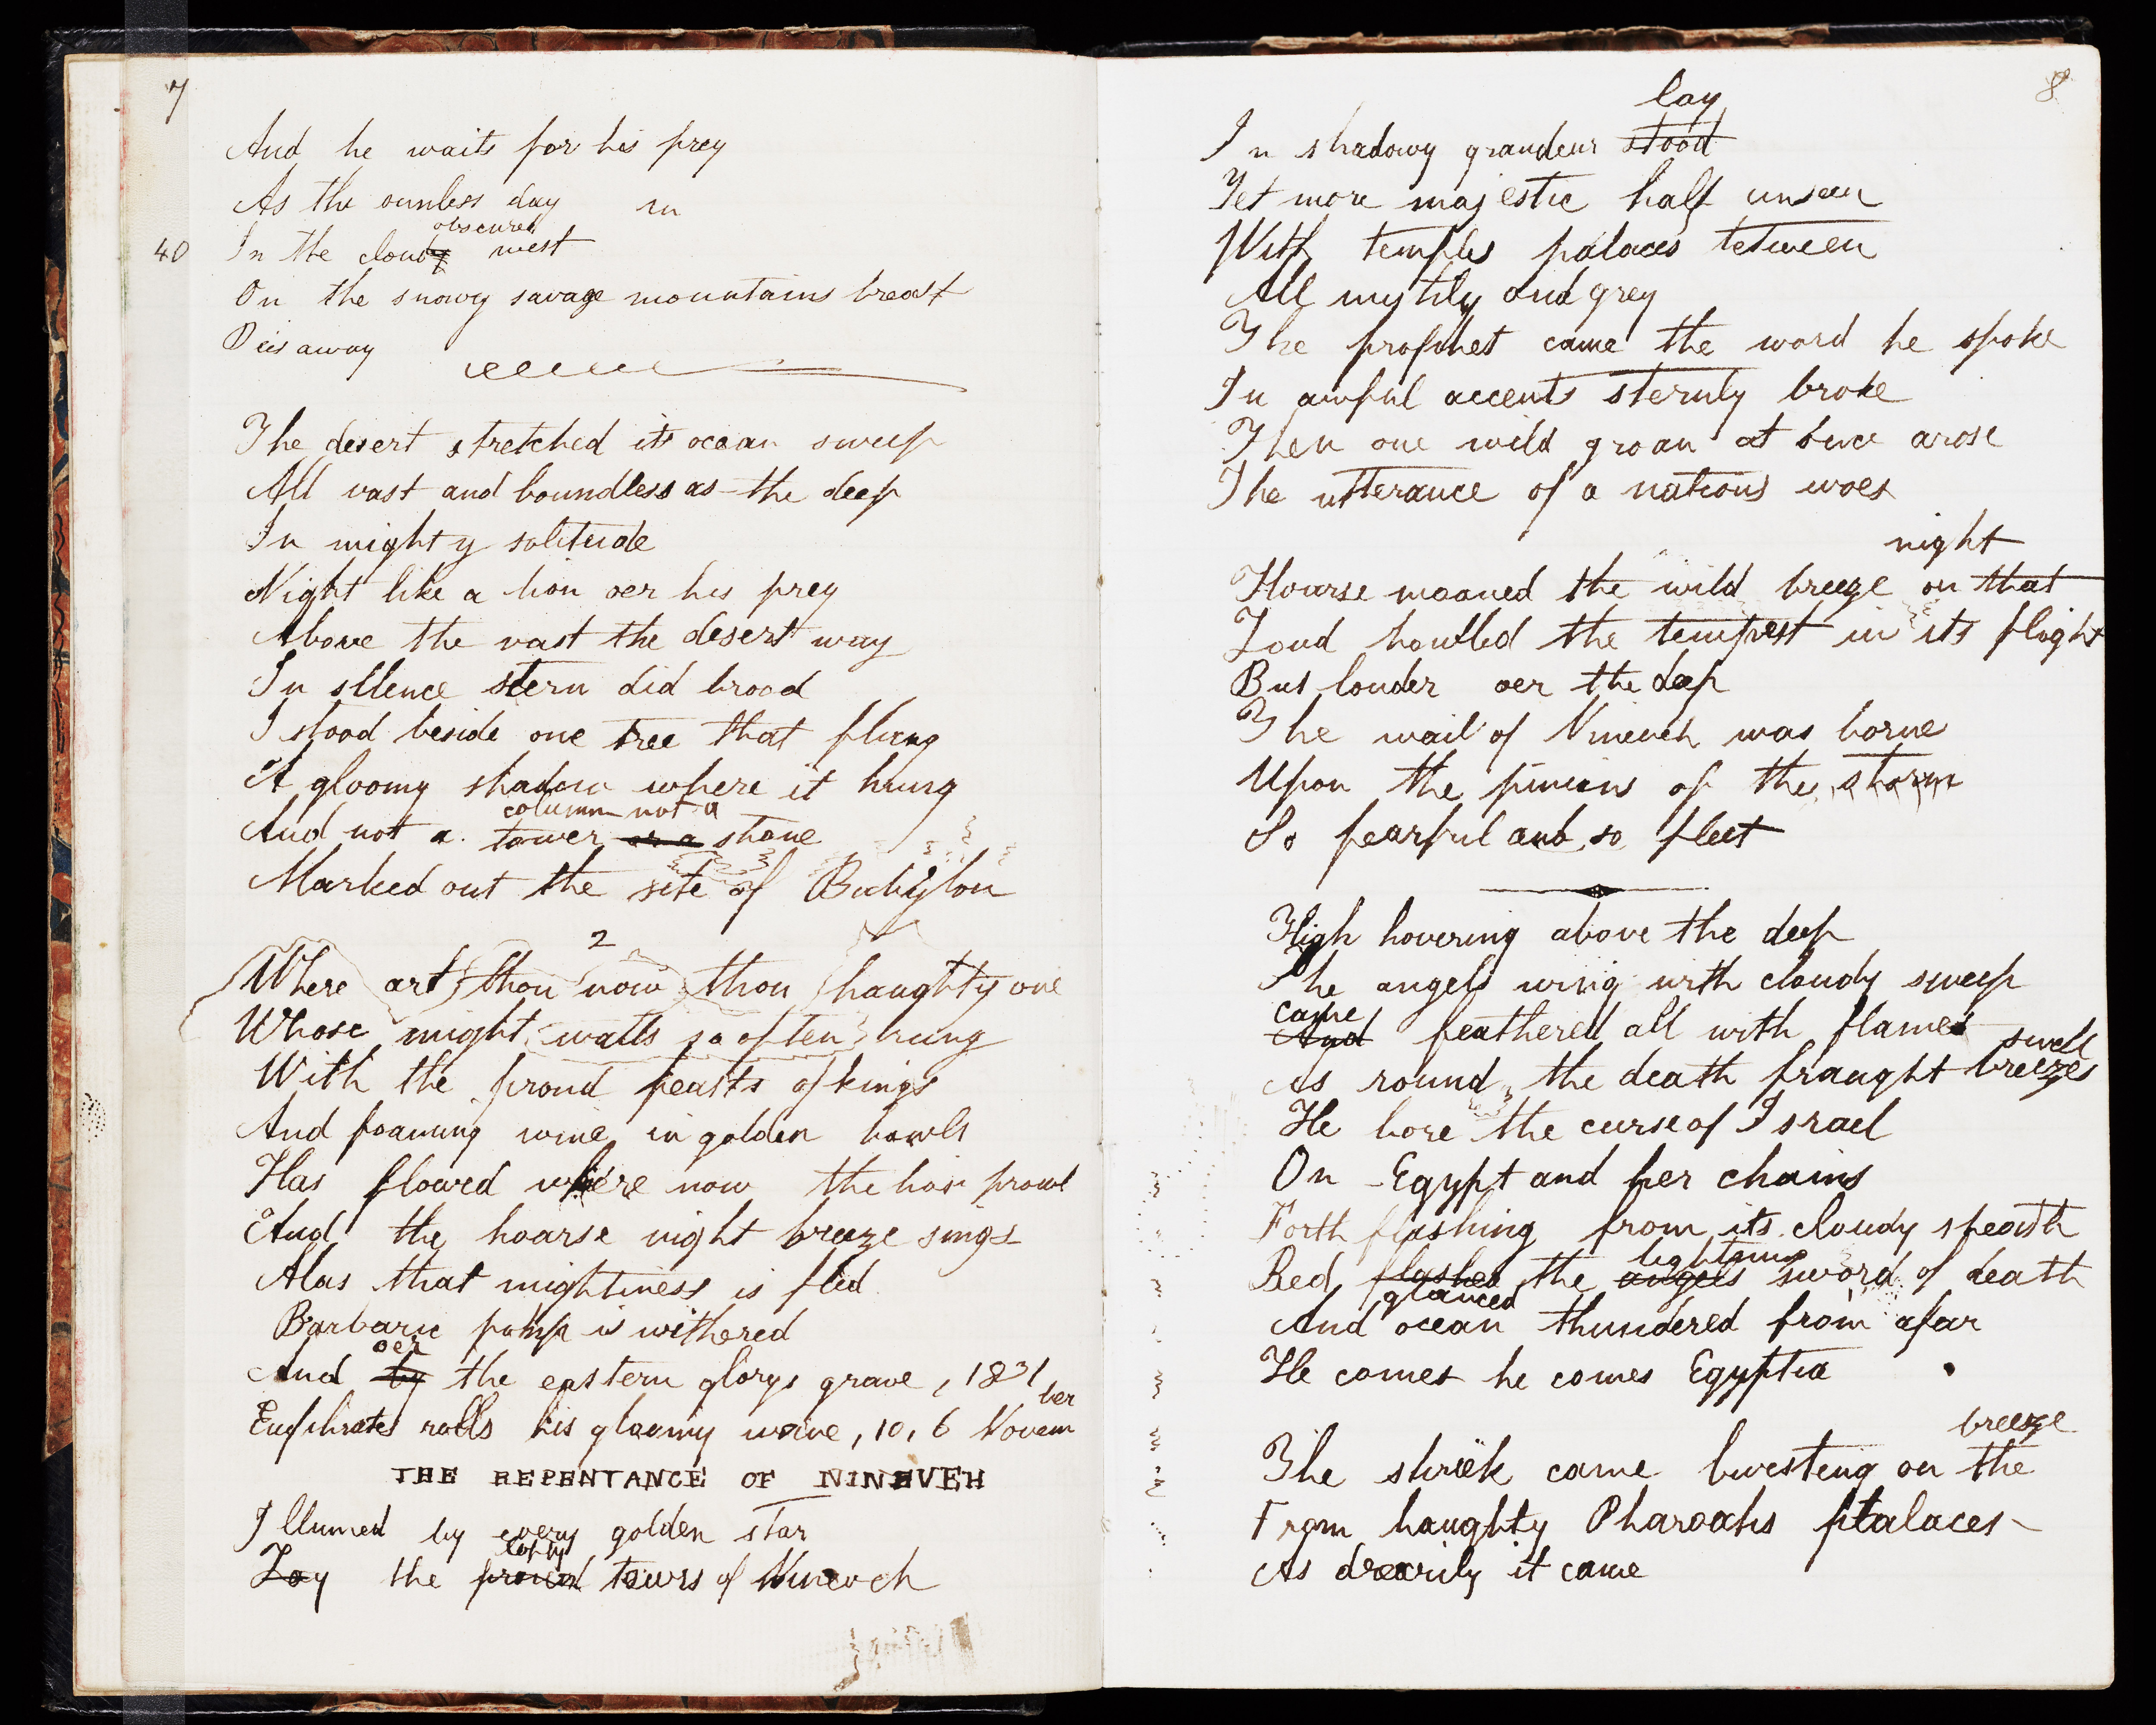 7
And he waits for his prey
As the sunless day in
obscured
40 In the cloudy west
On the snowy savage mountains breast
Dies away
The desert stretched its ocean sweep
All vast and boundless as the deep
In mighty solitude
Night like a lion oer his prey
Above the vast the desert way
In silence stern did brood
I stood beside one tree that flung
A gloomy shadow where it hung
column not a
And not a tower or a stone
Marked out the site of Babylon
2
Where art thou now thou haughty one
Whose might walls so often hung
With the proud feasts of kings
And foaming wine in golden bowls
Has flowed where now the lion prowl
And the hoarse night breeze sings
Alas that mightiness is fled
Barbaric pomp is withered
oer
And by the eastern glorys grave, 1831
Euphrates rolls his gloomy wave, 10, 6 November
THE REPENTANCE OF NINEVEH
Illumed by every golden star
lofty
Lay the proud towrs of Nineveh
8
lay
In shadowy grandeur stood
Yet more majestic half unseen
With temples palaces between
All mystily and grey
The prophet came the word he spoke
In awful accents sternly broke
Then one wild groan at once arose
The utterance of a nations woes
night
Hoarse moaned the wild breeze on that
Loud howlled the tempest in its flight
But louder oer the deep
The wail of Nineveh was borne
Upon the pinions of the storm
So fearful and so fleet
High hovering above the deep
The angels wing with cloudy sweep
came
And feathered all with flames
swell
As round the death fraught breezes
He bore the curse of Israel
On Egypt and her chains
Forth flashing from its cloudy sheath
lightning
Red flashed the angels sword of death
glanced
And ocean thundered from afar
He comes he comes Egyptia
breeze
The shriek came bursting on the
From haughty Pharoahs palaces
As drearily it came